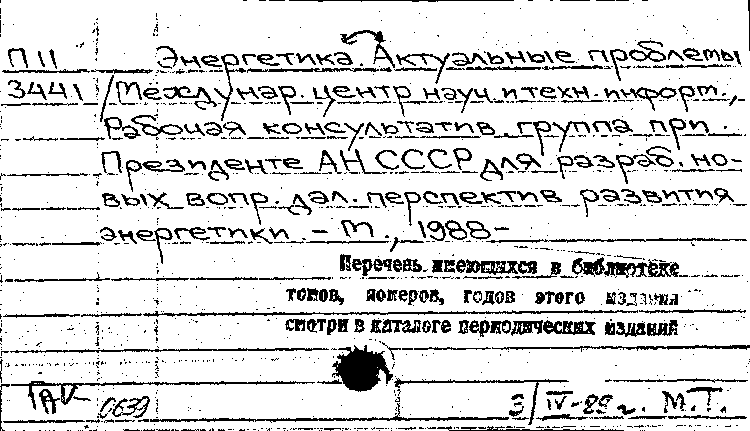 П 11 Энергетика. Актуальные проблемы
3441 /Междунар. центр науч. и техн. информ.,
Рабочая консультатив. группа при
Президенте АН СССР для разраб. но-
вых вопр. дал. перспектив развития
энергетики. – М., 1988–
Перечень имеющихся в библиотеке
томов, номеров, годов этого издания
смотри в каталоге периодических изданий
ГАК 0639 3/IV-89 г. М.Т.